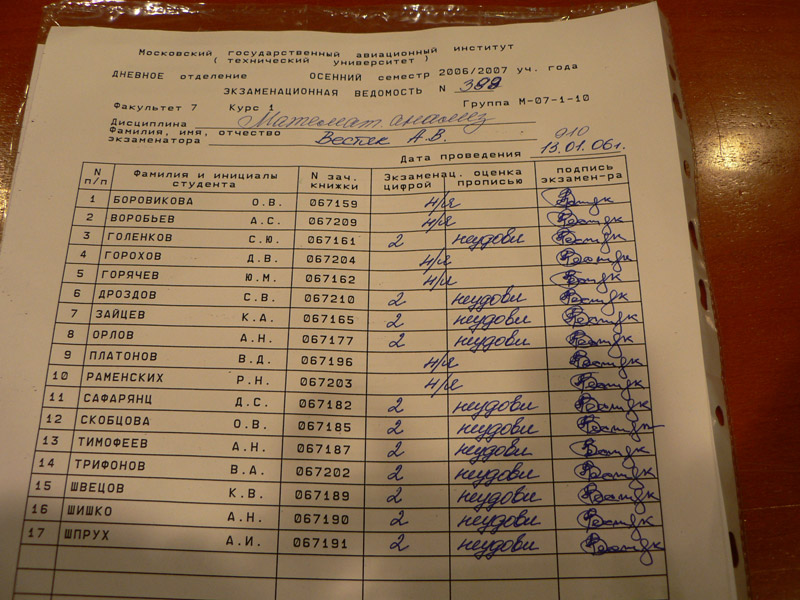 Московский государственный авиационный институт
( технический университет )
ДНЕВНОЕ отделение ОСЕННИЙ семестр 2006/2007 уч. года
ЭКЗАМЕНАЦИОННАЯ ВЕДОМОСТЬ N 399
Факультет 7 Курс 1 Группа М-07-1-10
Дисциплина Математ. анализ
Фамилия, имя, отчество
экзаменатора Вестяк А.В. 910
Дата проведения 13.01.06г.
N п/п Фамилия и инициалы студента N зач. книжки Экзаменац. оценка цифрой прописью подпись экзамен-ра
1 БОРОВИКОВА О.В. 067159 н/я
2 ВОРОБЬЕВ А.С. 067209 н/я
3 ГОЛЕНКОВ С.Ю. 067161 2 неудовл
4 ГОРОХОВ Д.В. 067204 н/я
5 ГОРЯЧЕВ Ю.М. 067162 н/я
6 ДРОЗДОВ С.В. 067210 2 неудовл
7 ЗАЙЦЕВ К.А. 067165 2 неудовл
8 ОРЛОВ А.Н. 067177 2 неудовл
9 ПЛАТОНОВ В.Д. 067196 н/я
10 РАМЕНСКИХ Р.Н. 067203 н/я
11 САФАРЯНЦ Д.С. 067182 2 неудовл
12 СКОБЦОВА О.В. 067185 2 неудовл
13 ТИМОФЕЕВ А.Н. 067187 2 неудовл
14 ТРИФОНОВ В.А. 067202 2 неудовл
15 ШВЕЦОВ К.В. 067189 2 неудовл
16 ШИШКО А.Н. 067190 2 неудовл
17 ШПРУХ А.И. 067191 2 неудовл